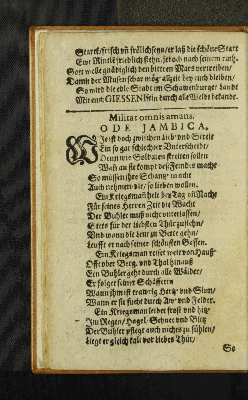 Starck/frisch vñ frölich seyn/er laß die schöne Statt
Ewr Rintle friedlich stehn/ jedoch nach seinem rath.
Gott wolle gnädiglich den bittern Mars vertreiben/
Damit der Musen schar mög allzeit bey euch bleiben/
So wird die edle Statt im Schawenburger Landt
Mit ewrt GIESSEN sein durch alle Welt bekandt.
Militat omnis amans.
ODE JAMBICA.
WJe ist doch zwischen Lieb vnd Streit
Ein so gar schlechter Unterscheidt/
Denn wie Soldaten streiten sollen
Wañ an sie kompt deß Feindes macht
So müssen ihre Schantz in acht
Auch nehmen die/ so lieben wollen.
Ein Kriegsmañ helt bey Tag vñ Nacht
Für seines Herren Zelt die Wacht
Der Buhler muß nicht unterlassen/
Stets für der liebsten Thür zu stehn/
Vnd wann die leut zu Bette gehn/
Leufft er nach seiner schönsten Gassen.
Ein Kriegsman reiset weit von Hauß
Offt vber Berg. vnd Thal hinauß
Ein Buhler geht durch alle Wälder/
Er folget seiner Schäffern
Wann ihm ist trawrig Hertz vnd Sinn/
Wann er sie sucht durch Aw vnd Felder.
Ein Kriegsman leidet frost vnd hitz
Jm Regen/ Hagel/ Schnee vnd Blitz
Der Buhler pflegt auch nichts zu fühlen/
Liegt er gleich kalt vor liebes Thür/
So